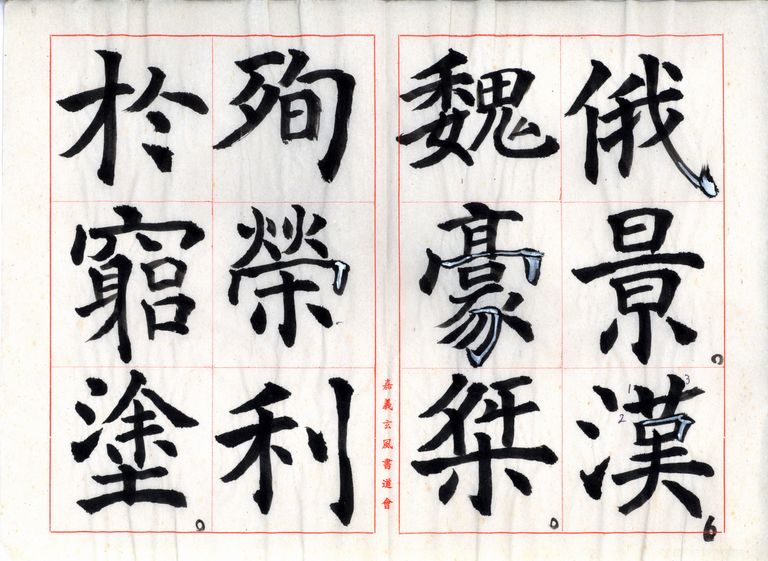 俄景漢
魏豪桀
嘉義玄風書道會
殉榮利
於竆塗
1
2
3
6